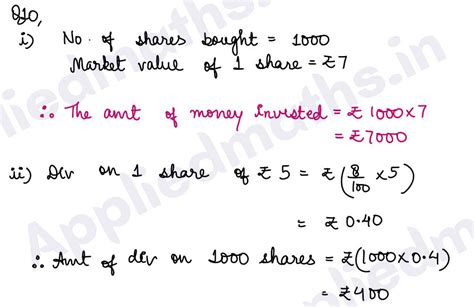 Q10,
i) No. of shares bought = 1000
Market value of 1 share = ₹7
∴ The amt of money invested = ₹1000×7
= ₹7000
ii) Div on 1 share of ₹5 = ₹(8/100 ×5)
= ₹0.40
∴ Amt of div on 1000 shares = ₹(1000×0.4)
= ₹400
Appliedmaths.in
Appliedmaths.in